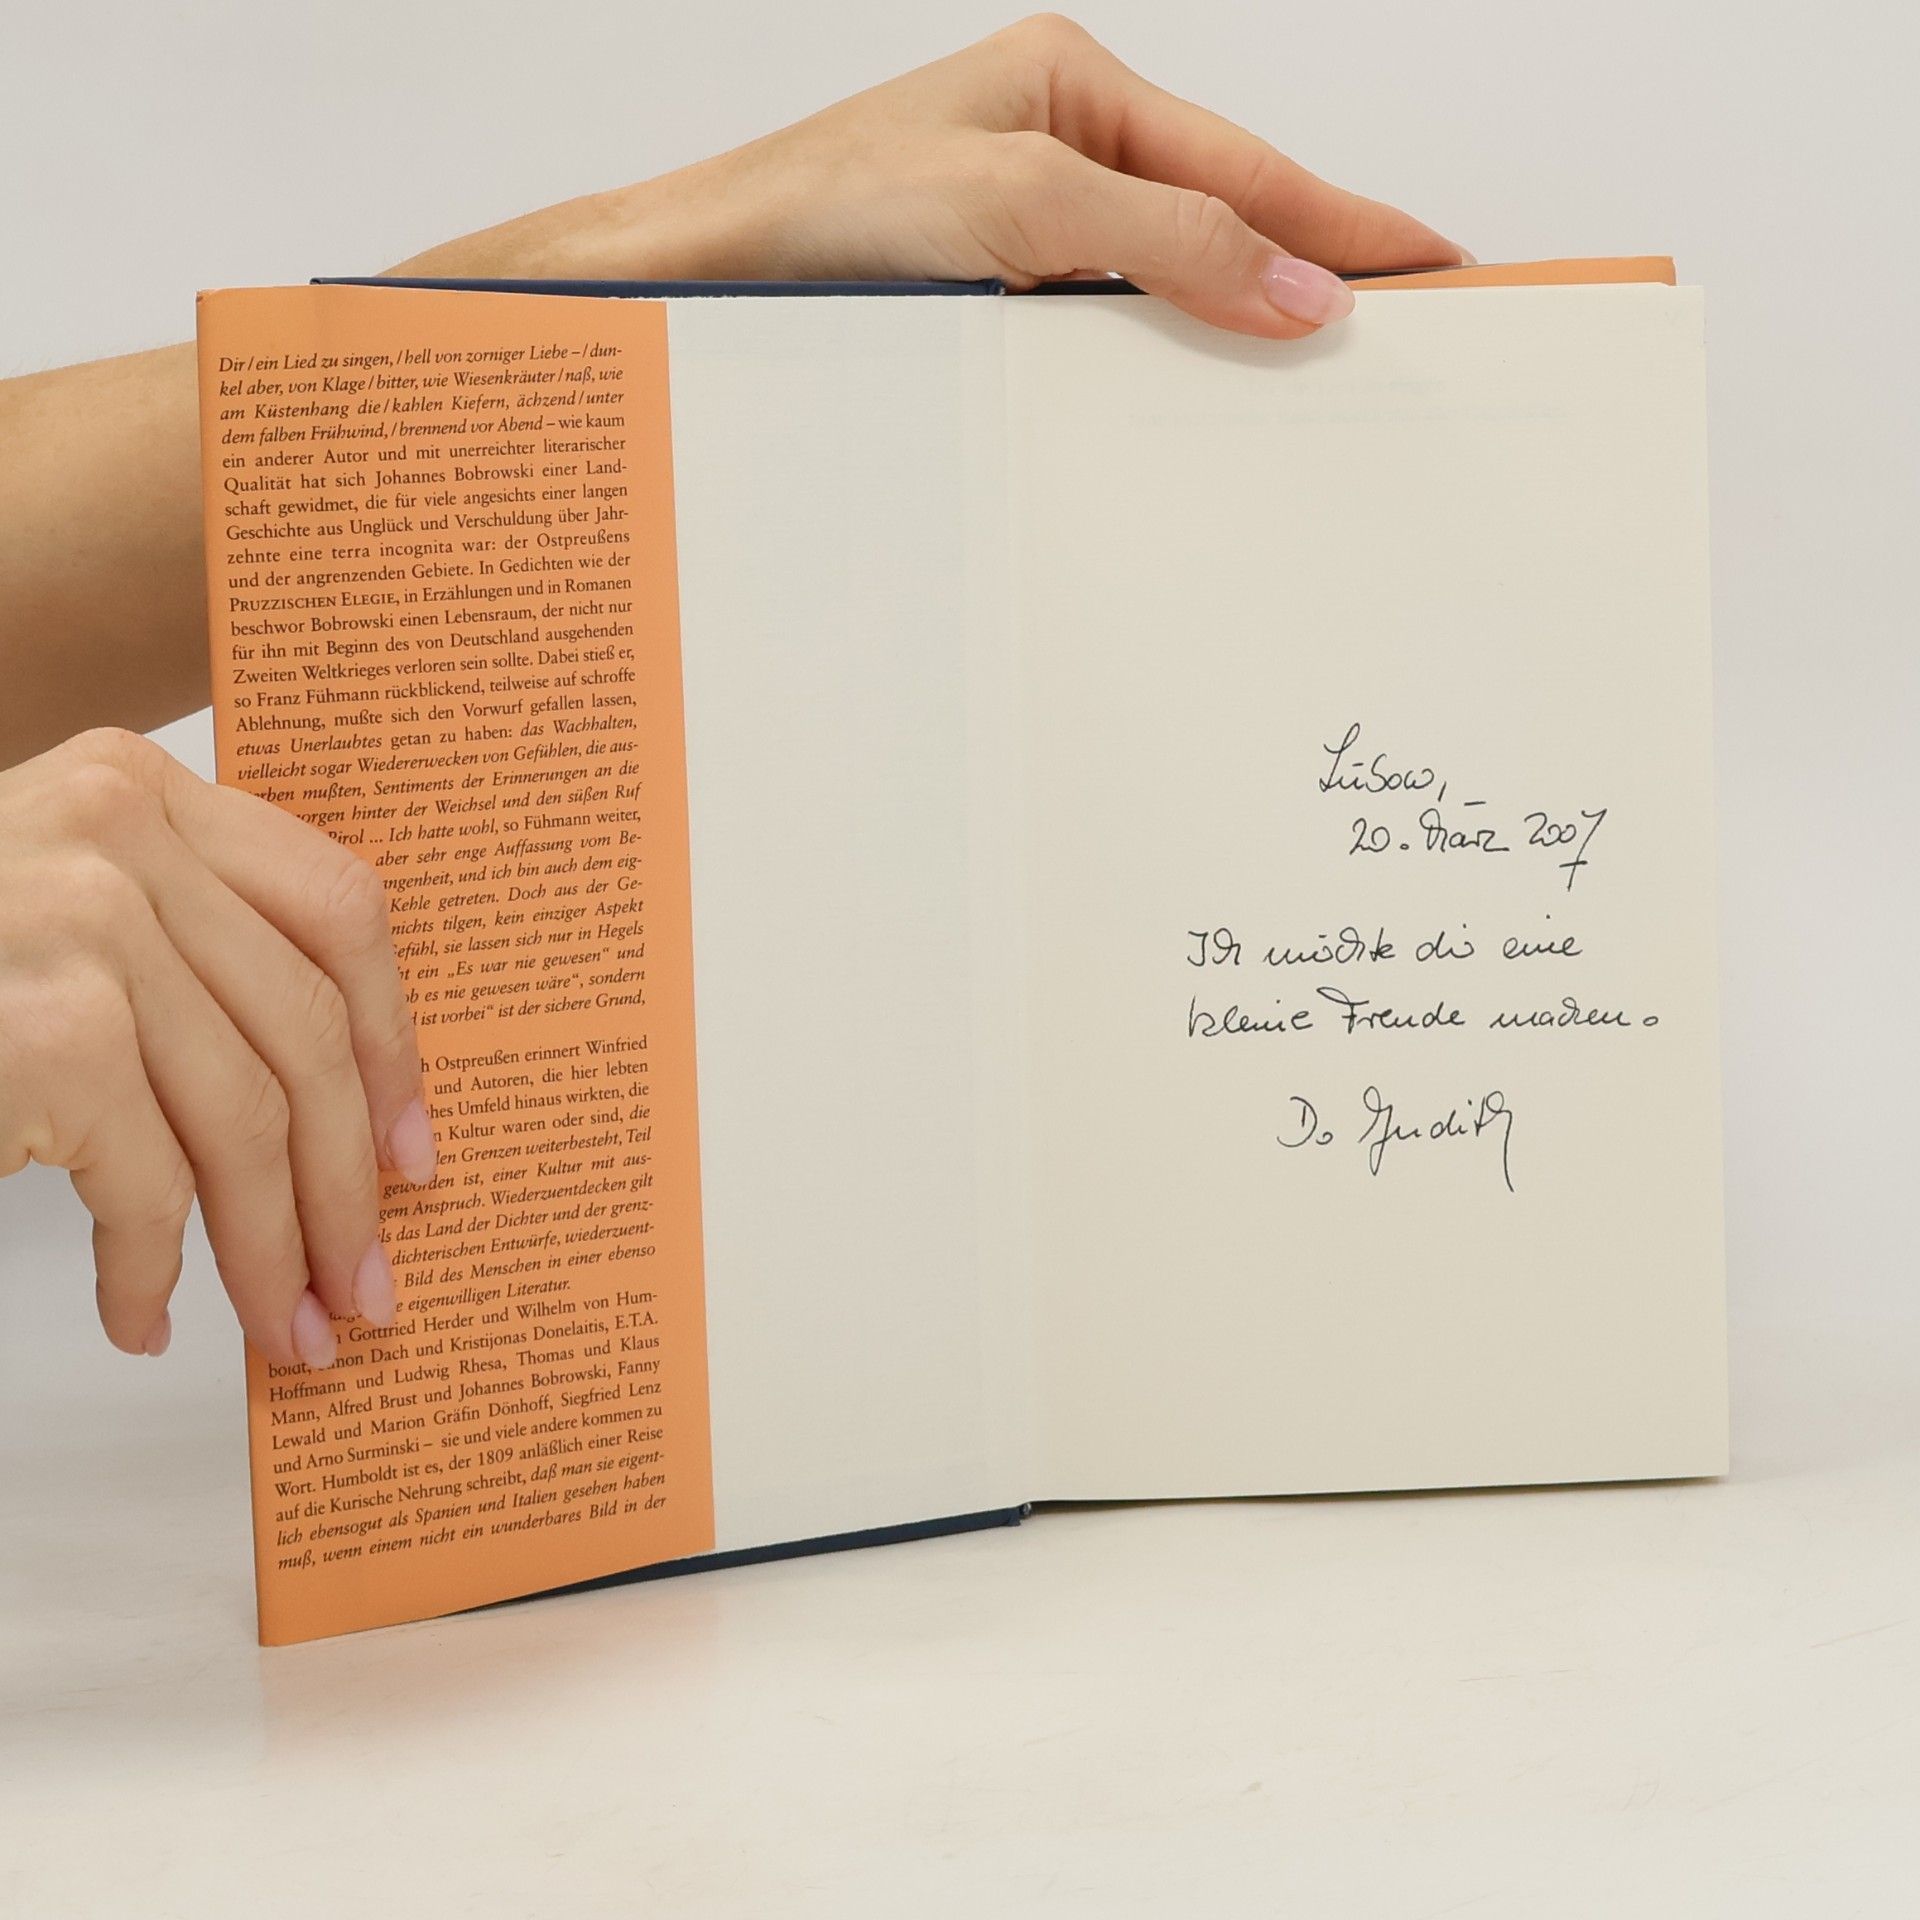 Dir / ein Lied zu singen, / hell von zorniger Liebe – / dun-
kel aber, von Klage / bitter, wie Wiesenkräuter / naß, wie
am Küstenhang die / kahlen Kiefern, ächzend / unter
dem falben Frühwind, / brennend vor Abend – wie kaum
ein anderer Autor und mit unerreichter literarischer
Qualität hat sich Johannes Bobrowski einer Land-
schaft gewidmet, die für viele angesichts einer langen
Geschichte aus Unglück und Verschuldung über Jahr-
zehnte eine terra incognita war: der Ostpreußens
und der angrenzenden Gebiete. In Gedichten wie der
PRUZZISCHEN ELEGIE, in Erzählungen und in Romanen
beschwor Bobrowski einen Lebensraum, der nicht nur
für ihn mit Beginn des von Deutschland ausgehenden
Zweiten Weltkrieges verloren sein sollte. Dabei stieß er,
so Franz Fühmann rückblickend, teilweise auf schroffe
Ablehnung, mußte sich den Vorwurf gefallen lassen,
etwas Unerlaubtes getan zu haben: das Wachhalten,
vielleicht sogar Wiedererwecken von Gefühlen, die aus-
erben mußten, Sentiments der Erinnerungen an die
orgen hinter der Weichsel und den süßen Ruf
Pirol ... Ich hatte wohl, so Fühmann weiter,
aber sehr enge Auffassung vom Be-
angenheit, und ich bin auch dem eig-
Kehle getreten. Doch aus der Ge-
nichts tilgen, kein einziger Aspekt
Gefühl, sie lassen sich nur in Hegels
ht ein „Es war nie gewesen“ und
ob es nie gewesen wäre“, sondern
d ist vorbei“ ist der sichere Grund,
h Ostpreußen erinnert Winfried
und Autoren, die hier lebten
hes Umfeld hinaus wirkten, die
n Kultur waren oder sind, die
den Grenzen weiterbesteht, Teil
geworden ist, einer Kultur mit aus-
gem Anspruch. Wiederzuentdecken gilt
ls das Land der Dichter und der grenz-
dichterischen Entwürfe, wiederzuent-
Bild des Menschen in einer ebenso
e eigenwilligen Literatur.
n Gottfried Herder und Wilhelm von Hum-
boldt, Simon Dach und Kristijonas Donelaitis, E.T.A.
Hoffmann und Ludwig Rhesa, Thomas und Klaus
Mann, Alfred Brust und Johannes Bobrowski, Fanny
Lewald und Marion Gräfin Dönhoff, Siegfried Lenz
und Arno Surminski – sie und viele andere kommen zu
Wort. Humboldt ist es, der 1809 anläßlich einer Reise
auf die Kurische Nehrung schreibt, daß man sie eigent-
lich ebensogut als Spanien und Italien gesehen haben
muß, wenn einem nicht ein wunderbares Bild in der
Lübow,
20. März 2007
Ich möchte dir eine
kleine Freude machen.
Do Judith